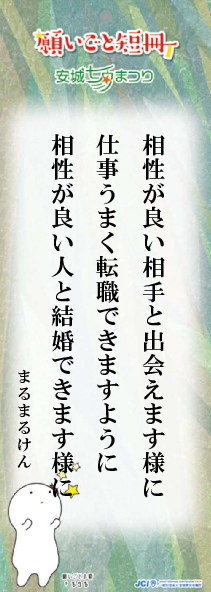 願いごと短冊
安城七夕まつり
相性が良い相手と出会えます様に
仕事うまく転職できますように
相性が良い人と結婚できます様に
まるまるけん
JCI